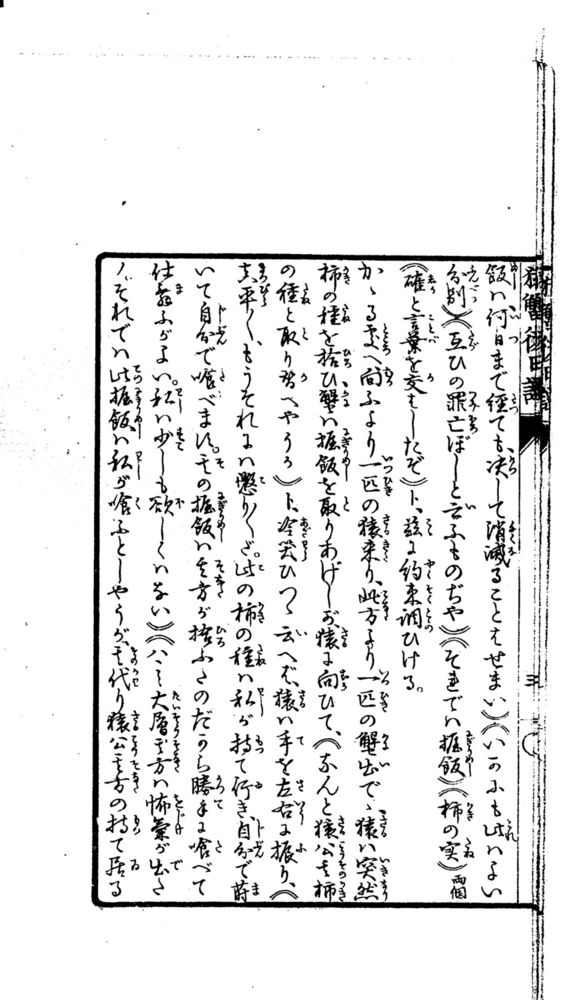 猿蟹後日譚
三
飯ハ何日まで経ても、决して消滅ることハせまい》《いかにも此ハよい
分別》《互ひの罪亡ぼしと云ふものぢや》《それでハ握飯》《柿の実》両個
《確と言葉を交ハしたぞ》ト、玆に約束調ひける。
かゝる処へ向ふより一匹の猿来り、此方より一匹の蟹出で、猿ハ突然
柿の種を拾ひ、蟹ハ握飯を取りあげしが、猿に向ひて、《なんと猿公其柿
の種と取り替へやうか》ト、冷笑ひつゝ云へば、猿ハ手を左右に振り、《
真平〳〵、もうそれにハ懲り〳〵だ。此の柿の種ハ私が持て行き、自分で蒔
いて自分で喰べます。其の握飯ハ其方が拾ふたのだから勝手に喰べて
仕舞ふがよい。私ハ少しも欲しくハない》《ハヽヽ大層其方ハ怖気が出た
ノ、それでハ此握飯ハ私が喰ふとしやうが、其代り猿公其方の持て居る